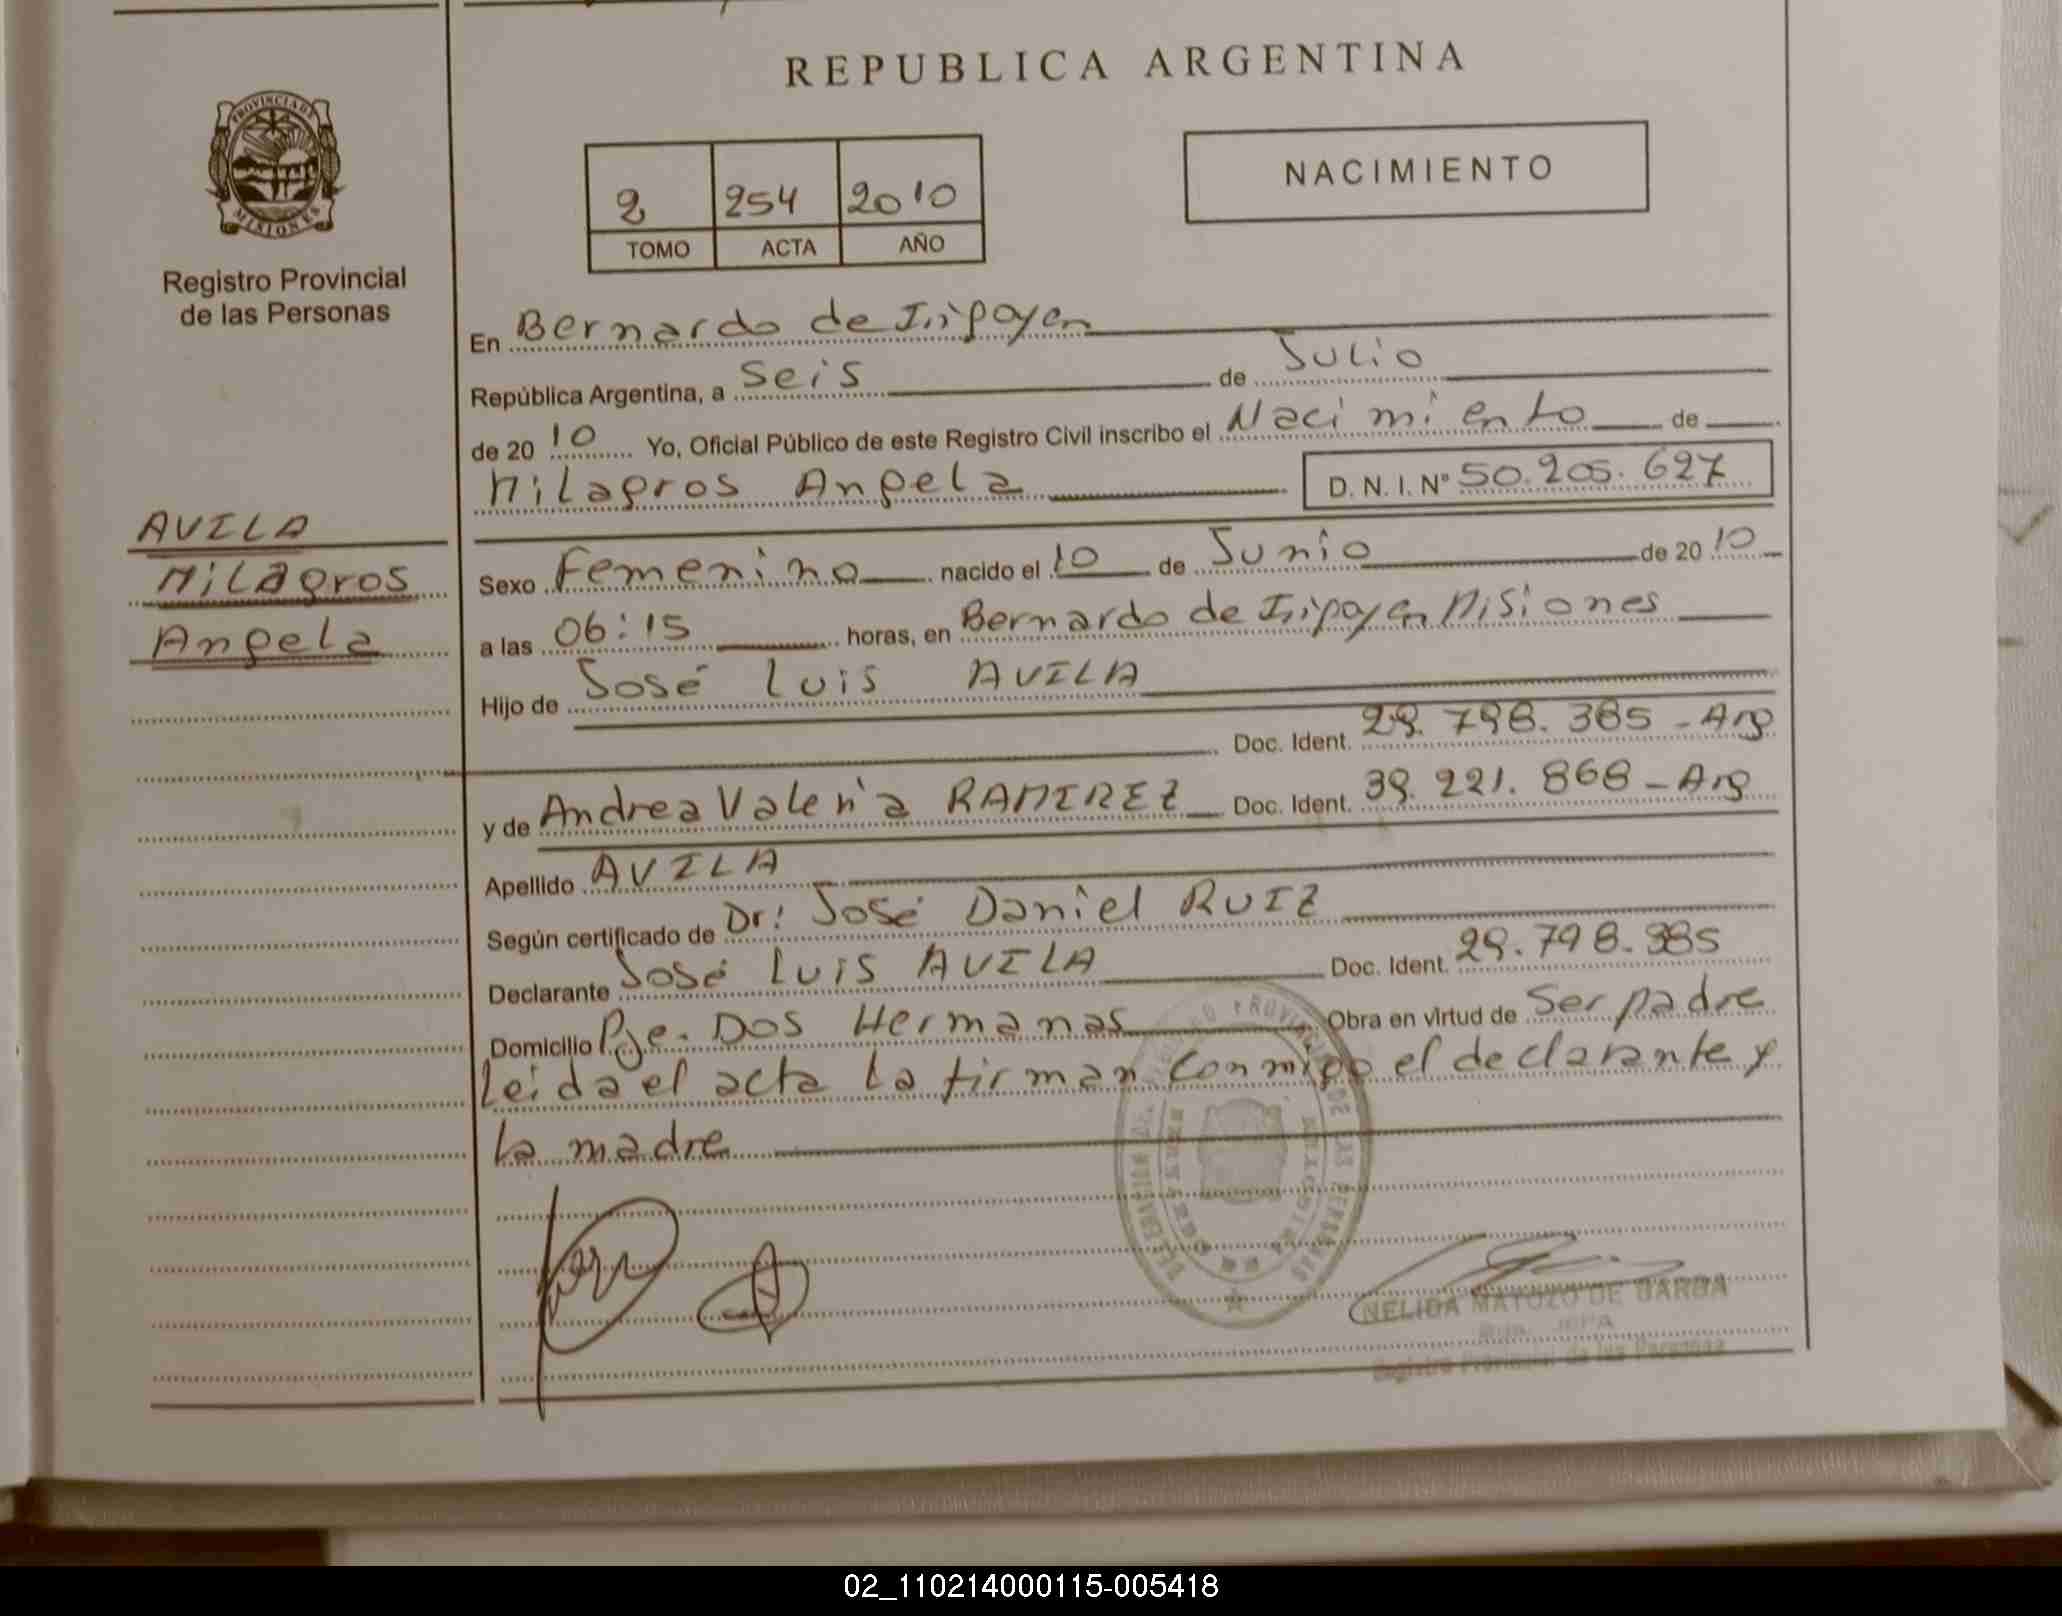 REPUBLICA ARGENTINA
PROVINCIA DE
MISIONES
Registro Provincial
de las Personas
2 254 2010
TOMO ACTA AÑO
NACIMIENTO
En Bernardo de Irigoyen
República Argentina, a Seis de Julio
de 20 10 Yo, Oficial Público de este Registro Civil inscribo el Nacimiento de
Milagros Angela D. N. I. Nº 50.205.627
AVILA
Milagros
Angela
Sexo Femenino nacido el 10 de Junio de 20 10
a las 06:15 horas, en Bernardo de Irigoyen Misiones
Hijo de José Luis AVILA
Doc. Ident. 29.798.385 - Arg
y de Andrea Valeria RAMIREZ Doc. Ident. 39.221.868 - Arg
Apellido AVILA
Según certificado de Dr: José Daniel RUIZ
Declarante José Luis AVILA Doc. Ident. 29.798.385
Domicilio Pje. Dos Hermanas Obra en virtud de Ser padre
Leida el acta la firman conmigo el declarante y
la madre
DELEGACION DEL REGISTRO PROVINCIAL DE LAS PERSONAS
NELIDA MATOZO DE BARBA
Registro Provincial de las Personas
02_110214000115-005418